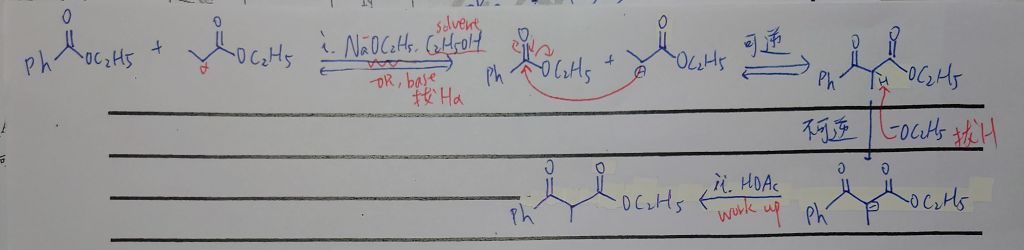 O O solvent O O O O
Ph OC2H5 + OC2H5 i. NaOC2H5. C2H5OH Ph OC2H5 + OC2H5 可逆 Ph OC2H5
-OR, base ⊖ H
拔Hα
不可逆 -OC2H5 拔H
O O O O
Ph OC2H5 ii. HOAc Ph ⊖ OC2H5
work up